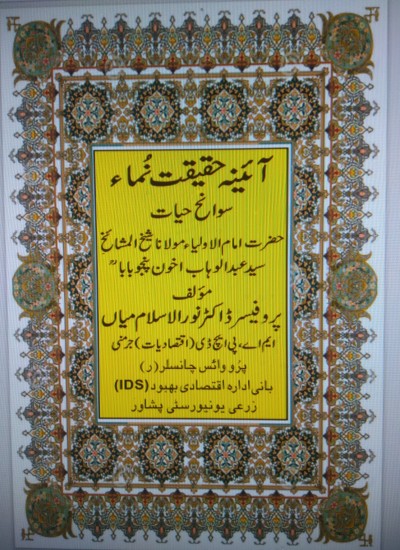 آئینہ حقیقت نُماء
سوانح حیات
حضرت امام الاولیاء مولانا شیخ المشائخ
سید عبدالوہاب اخون پنجو باباؒ
مؤلف
پروفیسر ڈاکٹر نور الاسلام میاں
ایم اے، پی ایچ ڈی (اقتصادیات) جرمنی
پرو وائس چانسلر (ر)
بانی ادارہ اقتصادی بہبود (IDS)
زرعی یونیورسٹی پشاور